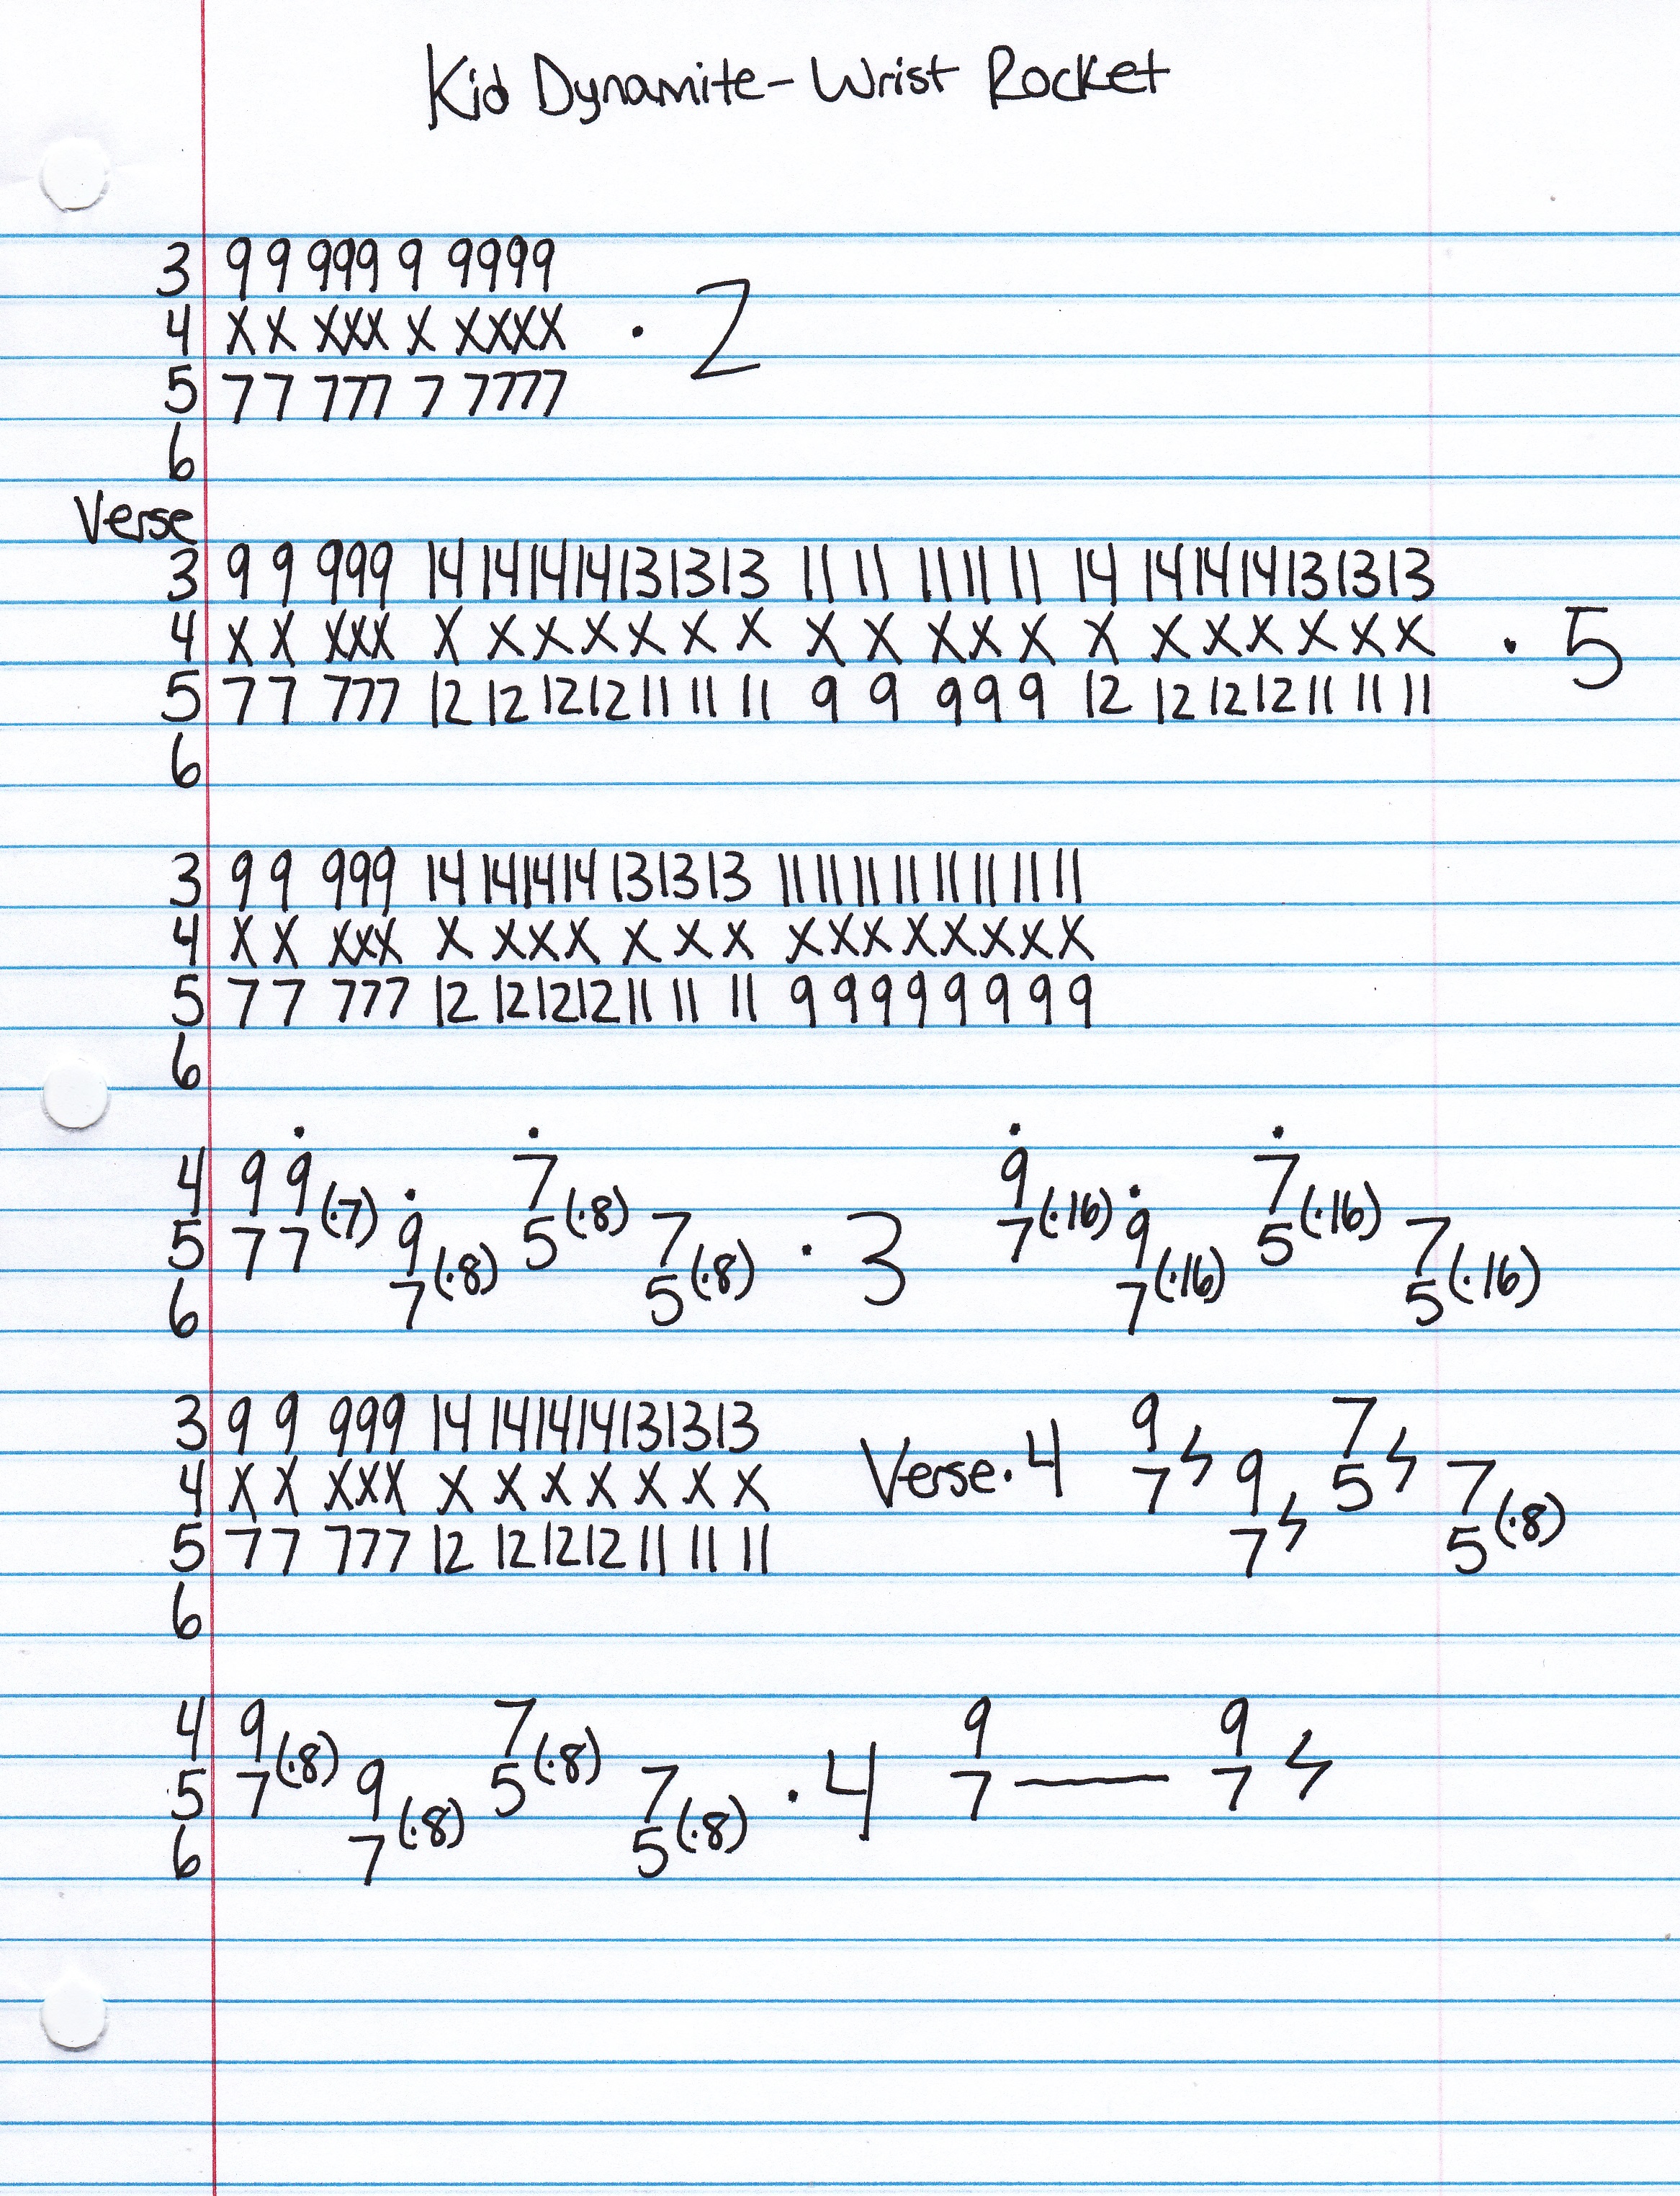 Kid Dynamite - Wrist Rocket
3 9 9 999 9 9999
4 X X XXX X XXXX · 2
5 7 7 777 7 7777
6
Verse
3 9 9 999 14 14 14 14 13 13 13 11 11 11 11 11 14 14 14 14 13 13 13
4 X X XXX X X X X X X X X X X X X X X X X X X X · 5
5 7 7 777 12 12 12 12 11 11 11 9 9 9 9 9 12 12 12 12 11 11 11
6
3 9 9 999 14 14 14 14 13 13 13 11 11 11 11 11 11 11 11
4 X X XXX X XXX X X X XXXXXXXX
5 7 7 777 12 12 12 12 11 11 11 9 9 9 9 9 9 9 9
6
4 9 9 7 9 7
5 7 7 (·7) 9 5 (·8) 7 · 3 7 (·16) 9 5 (·16) 7
6 7 (·8) 5 (·8) 7 (·16) 5 (·16)
3 9 9 999 14 14 14 14 13 13 13 9 7
4 X X XXX X X X X X X X Verse · 4 7 ϟ 9 5 ϟ 7
5 7 7 777 12 12 12 12 11 11 11 7 ϟ 5 (·8)
6
4 9 7 9 9
5 7 (·8) 9 5 (·8) 7 · 4 7 — 7 ϟ
6 7 (·8) 5 (·8)